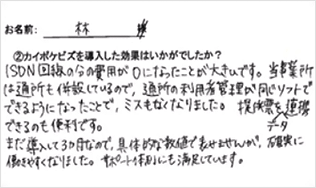 お名前： 林 様
②カイポケビズを導入した効果はいかがでしたか？
ISDN回線の分の費用が0になったことが大きいです。当事業所
は通所も併設しているので、通所の利用者管理が同じソフトで
できるようになったことで、ミスもなくなりました。提供票を連携
データ
できるのも便利です。
まだ導入して3か月なので、具体的な数値で表せませんが、確実に
働きやすくなりました。サポート体制にも満足しています。